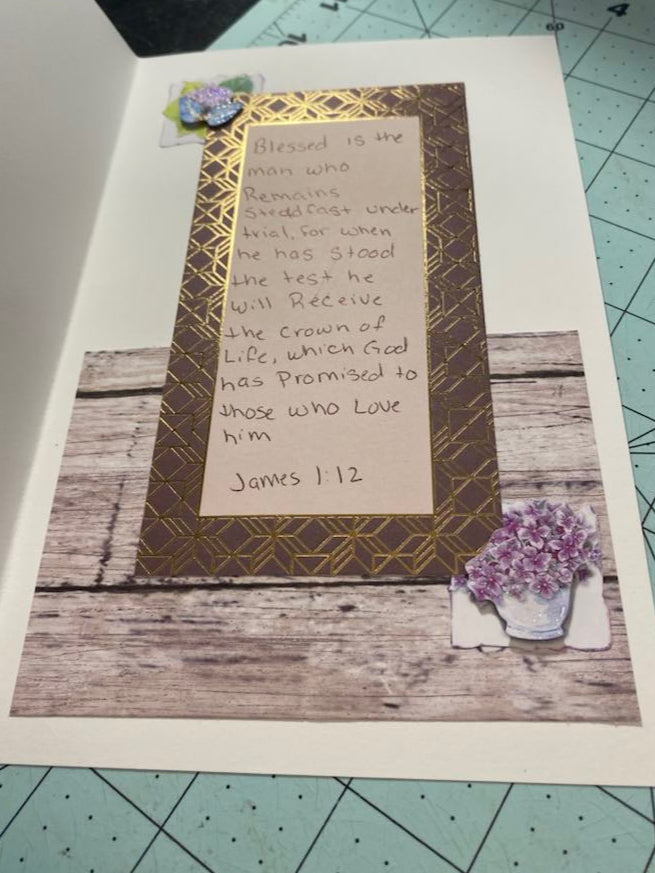 Blessed is the
man who
Remains
Steadfast under
trial, for when
he has stood
the test he
will Receive
the crown of
Life, which God
has Promised to
those who Love
him
James 1:12
10
11
60
4